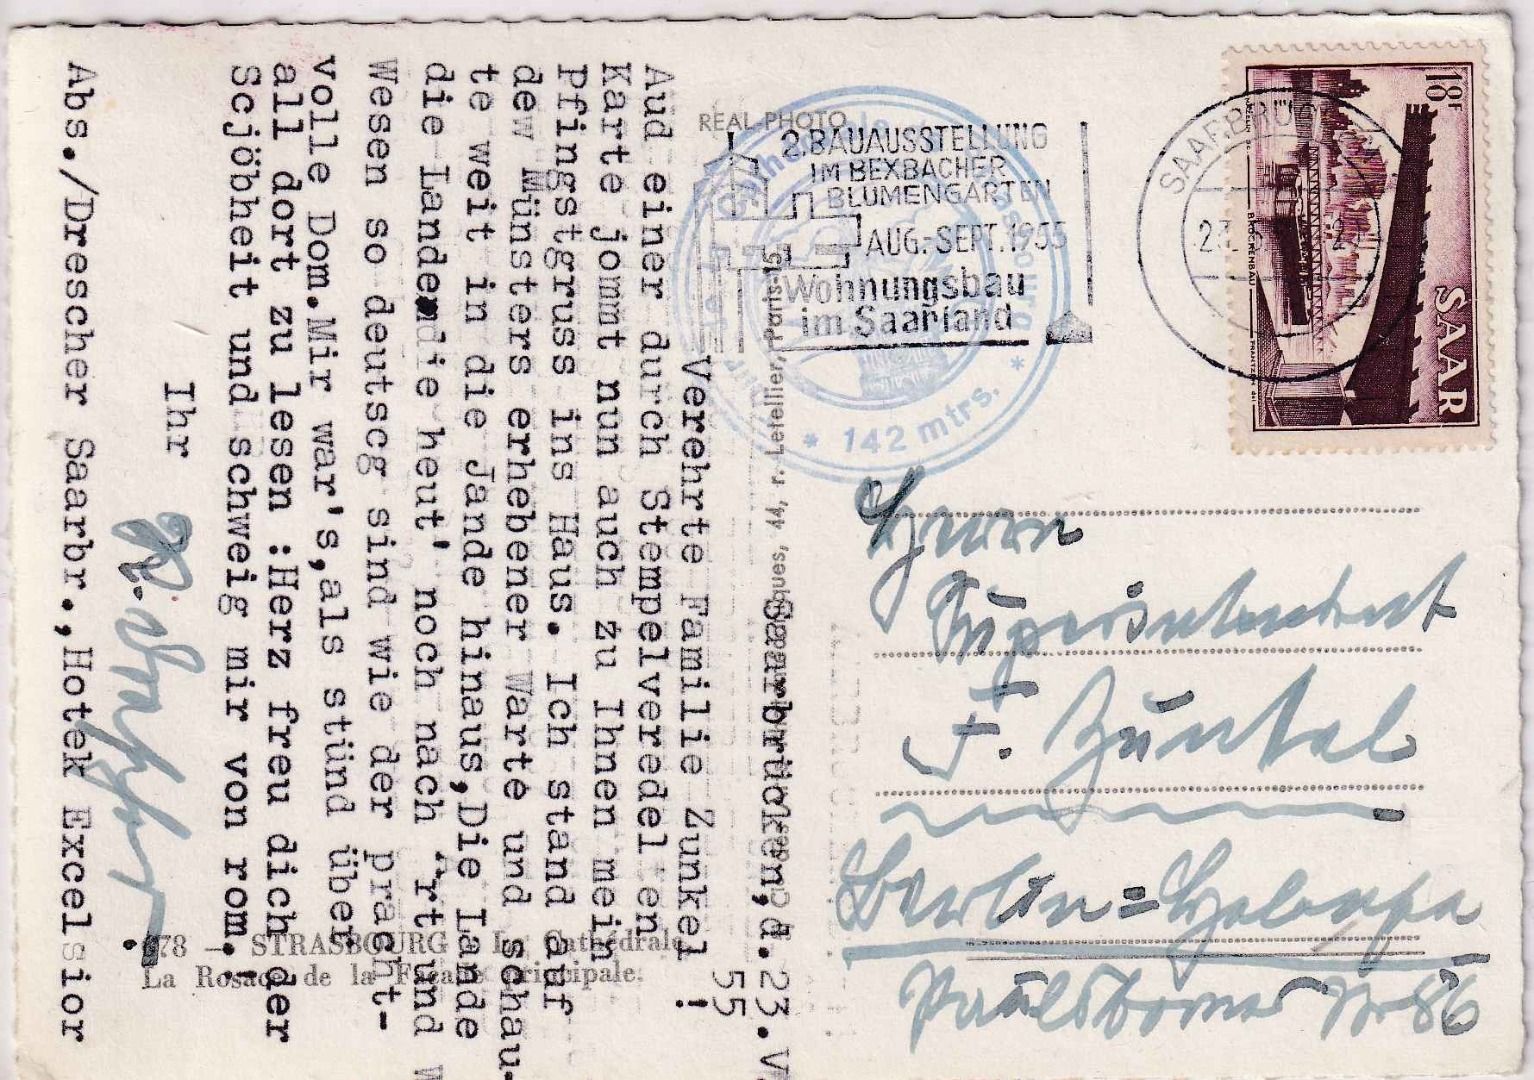 Saarbrücken,d.23.V.
55
Verehrte Familie Zunkel !
Aud einer durch Stempelveredelten
Karte jommt nun auch zu Ihnen mein
Pfingstgruss ins Haus. Ich stand auf
dew Münsters erhebener Warte und schau-
te weit in die Jande hinaus,Die Lande
die Landendie heut' noch nach 'rt und W
Wesen so deutscg sind wie der pracht-
volle Dom.Mir war's,als stünd über
all dort zu lesen :Herz freu dich der
Scjöbheit und schweig mir von rom.!
Ihr
Abs./Drescher Saarbr.,Hotek Excelsior
REAL-PHOTO
2.BAUAUSSTELLUNG
IM BEXBACHER
BLUMENGARTEN
AUG.-SEPT.1955
Wohnungsbau
im Saarland
* 142 mtrs. *
SAARBRÜC
18F
SAAR
BRÜCKENBAU
Herrn
Superintendent
F. Zunkel
Berlin=Halensee
Paulsborner Nr 86
44, r. Letellier, Paris-15
178 — STRASBOURG - La Cathédrale
La Rosace de la Façade principale.